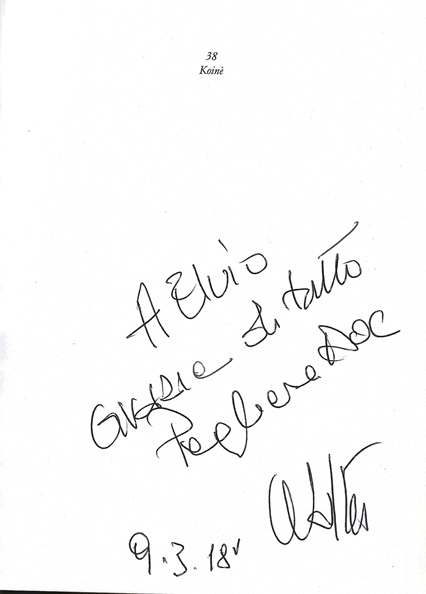 38
Koinè
A Elvio
Grazie di tutto
DOC
9.3.18